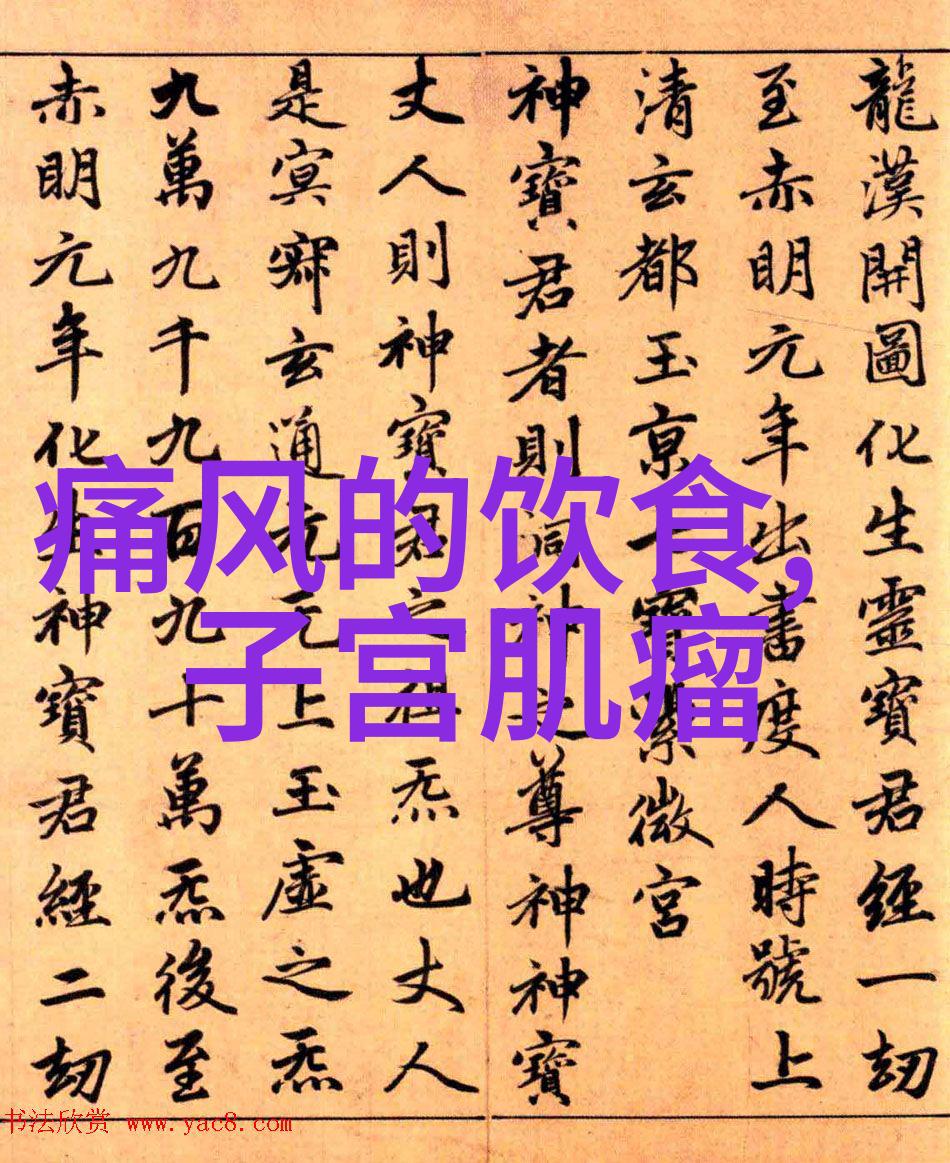 龍漢開圖化生靈寶君經一劫
至赤明元年出書度人時號上
清玄都玉京七寶紫微宮
神寶君者則洞神之尊神神寶
丈人則神寶君之祖炁也丈人
是冥寂玄通元无上玉虛之炁
九萬九千九百九十萬炁後至
赤明元年化生神寶君經二劫
痛风的饮食,
子宫肌瘤
书法欣赏 www.yac8.com